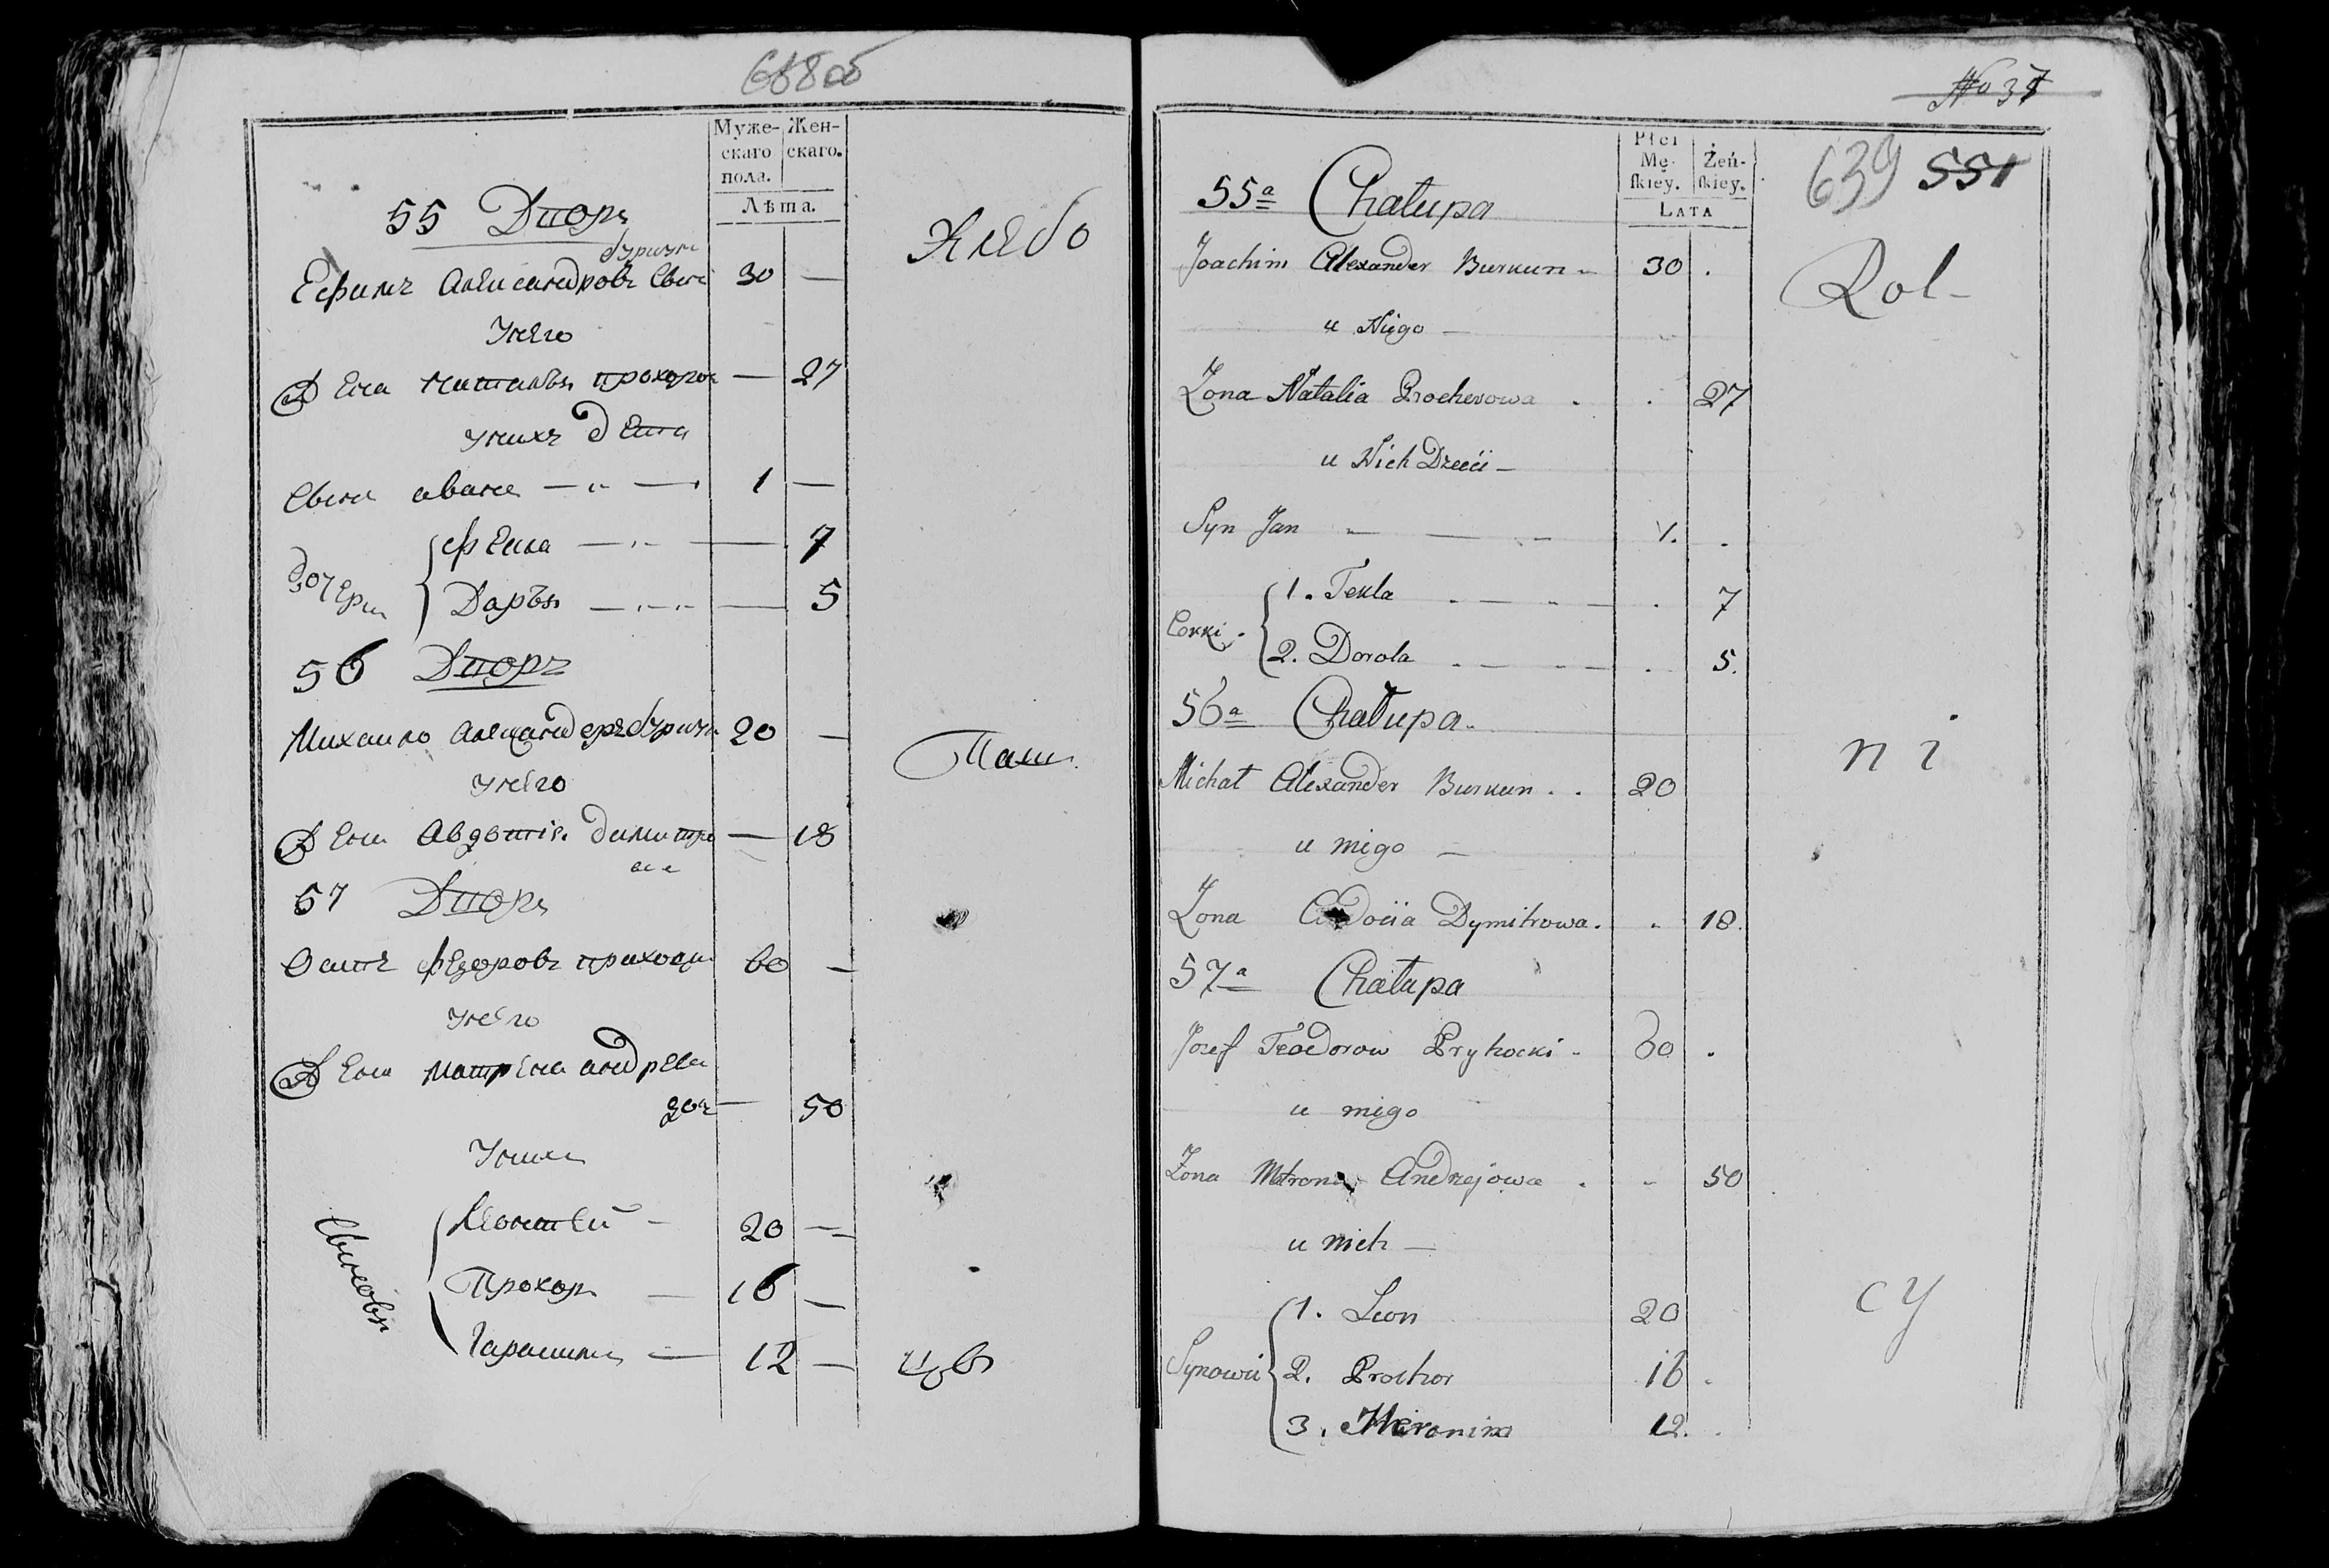 638об
Муже-
скаго
пола.
Жен-
скаго.
Лѣта.
55 Дворъ
Ефимъ Александровъ 30 —
Унего
Жена Наталья Прохоров — 27
Унихъ дети
Сынъ иванъ — „ — 1 —
дочери
фекла — „ — 7
Дарья — „ — 5
Хлебо
56 Дворъ
Михаило Александеръ Буркун 20 —
Унего
Жена Авдотія Димитро
ва — 18
Паш
57 Дворъ
Осипъ Федоровъ прихоцки 60 —
Унего
Жена Матрена андреева
— 50
Унихъ
Сыновья
Леонтей — 20 —
Прохоръ — 16 —
Гарасимъ — 12 —
цы
No 37
639 551
Płci
Mę-
ſkiey.
Żeń-
ſkiey.
LATA
55a Chałupa
Joachim Alexander Burkun — 30 .
u Niego —
Żona Natalia Prochorowa . . 27
u Nich Dzieći —
Syn Jan — — 1. .
Corki.
1. Tekla . — . 7
2. Dorota . — . 5.
Rol-
56a Chałupa.
Michał Alexander Burkun . . 20
u niego —
Żona Dymitrowa. . 18.
ni
57a Chałupa
Jozef Teodorow Pryhocki . 60 .
u niego
Żona Matrona Andrzejowa . - 50
u nich —
Synowie
1. Leon 20
2. Prochor 16 .
3. Hieronim 12. .
cy